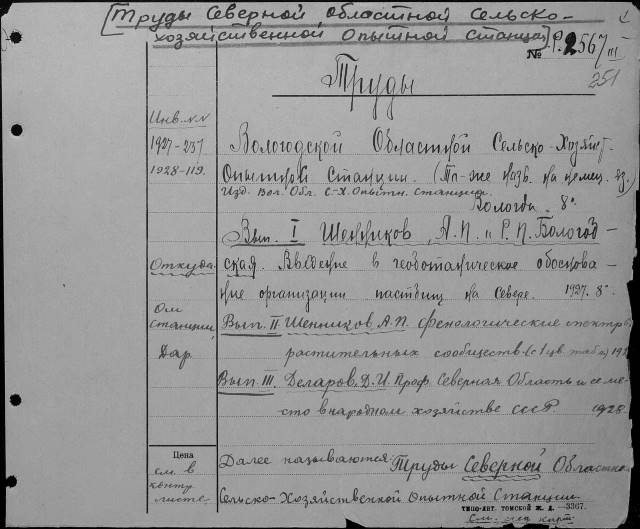 [Труды Северной Областной Сельско-
хозяйственной Опытной Станции]
№ Р.2567 III
251
Труды
Инв. NN
1927-237
1928-119.
Вологодской Областной Сельско-Хозяйст.
Опытной Станции. (То-же назв. на немец. яз.)
Изд. Вол. Обл. С-Х. Опытн. Станции.
Вологда. 8°.
Вып. I Шенников, А.П. и Р.П. Бологов-
Откуда.
ская. Введение в геоботаническое обоснова-
ние организации пастбищ на Севере. 1927. 8°
От
станции,
Дар
Вып. II Шенников, А.П. Фенологические спектры
растительных сообществ (с 1 цв. табл.) 192
Вып. III. Деларов, Д.И. Проф. Северная Область и ее ме-
сто в народном хозяйстве СССР. 1928.
Цена
см. в
конту
листе.
Далее называются: Труды Северной Областной
Сельско-Хозяйственной Опытной Станции.
ТИПО-ЛИТ. ТОМСКОЙ Ж. Д. —3367.
См. на карт.